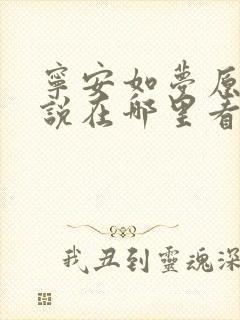 寧安如夢原
說在哪里看
我丑到靈魂深